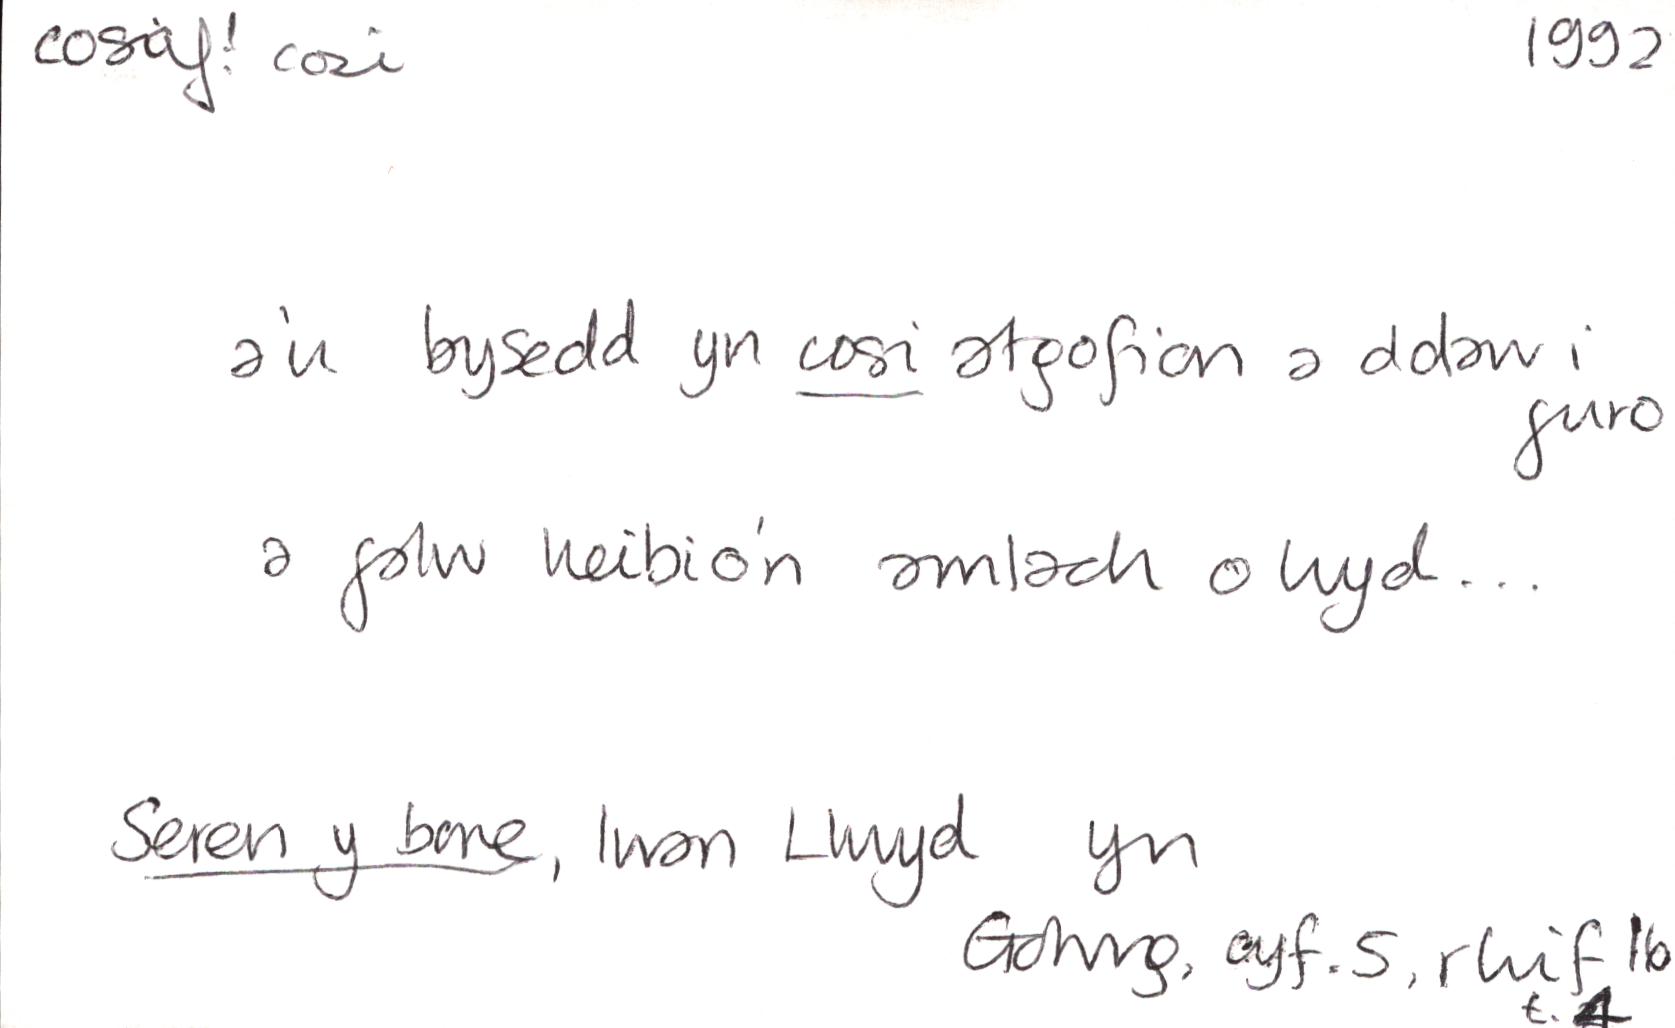 cosiaf: cosi 1992
a'u bysedd yn cosi atgofion a ddaw i
guro
a galw heibio'n amlach o hyd...
Seren y bore, Iwan Llwyd yn
Golwg, cyf. 5, rhif 16
t. 4